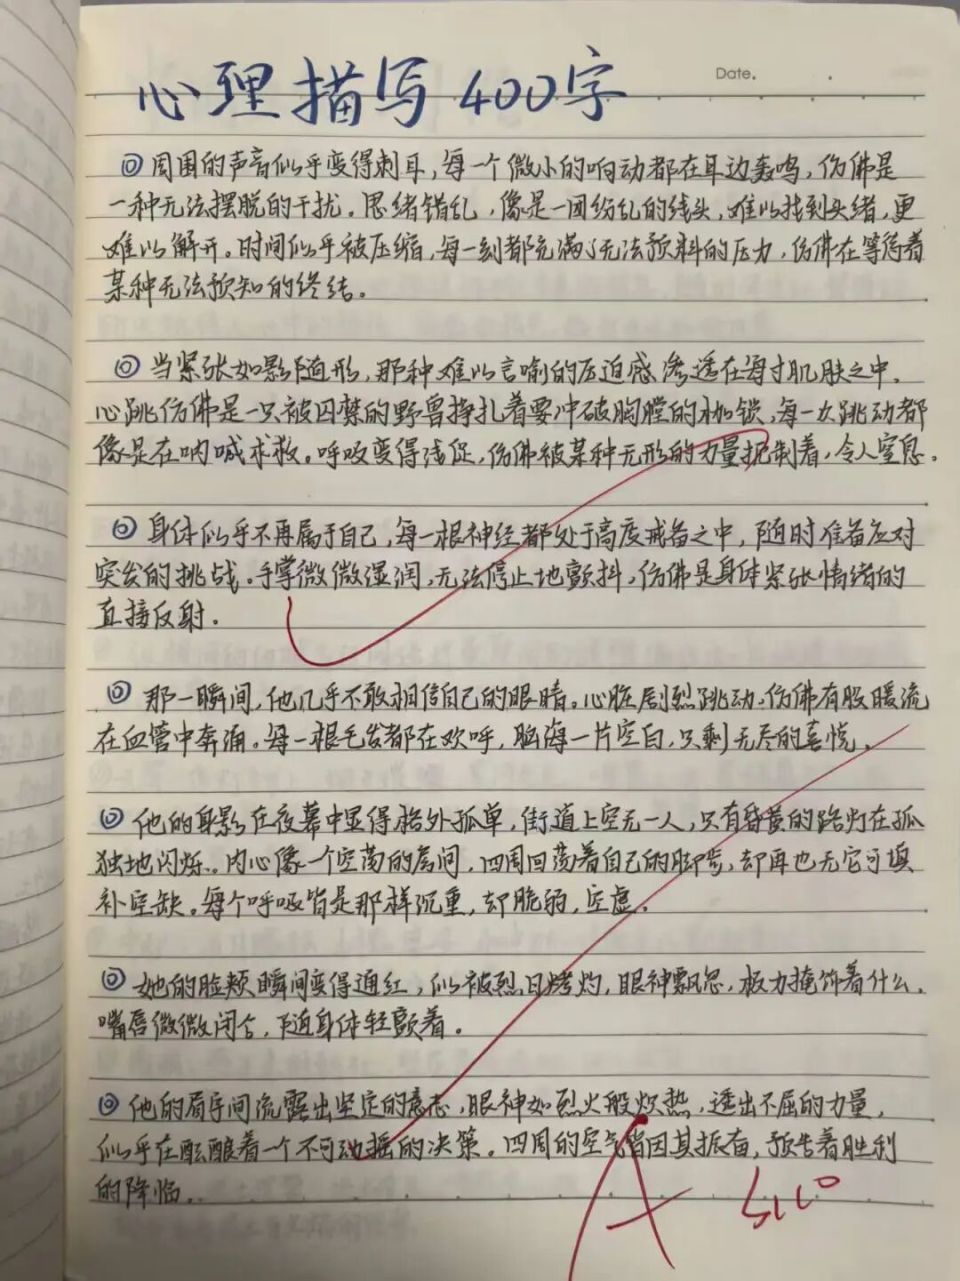 Date.
心理描写400字
◎ 周围的声音似乎变得刺耳，每一个微小的响动都在耳边轰鸣，仿佛是
一种无法摆脱的干扰。思绪错乱，像是一团纷乱的线头，难以找到头绪，更
难以解开。时间似乎被压缩，每一刻都充满了无法预料的压力，仿佛在等待着
某种无法预知的终结。
◎ 当紧张如影随形，那种难以言喻的压迫感渗透在每寸肌肤之中。
心跳仿佛是一只被囚禁的野兽挣扎着要冲破胸膛的枷锁，每一次跳动都
像是在呐喊求救。呼吸变得浅促，仿佛被某种无形的力量扼制着，令人窒息。
◎ 身体似乎不再属于自己，每一根神经都处于高度戒备之中，随时准备应对
突发的挑战。手掌微微湿润，无法停止地颤抖，仿佛是身体紧张情绪的
直接反射。
◎ 那一瞬间，他几乎不敢相信自己的眼睛。心脏剧烈跳动，仿佛有股暖流
在血管中奔涌。每一根毛发都在欢呼，脑海一片空白，只剩无尽的喜悦。
◎ 他的身影在夜幕中显得格外孤单，街道上空无一人，只有昏黄的路灯在孤
独地闪烁。内心像一个空荡的房间，四周回荡着自己的脚步，却再也无它可填
补空缺。每个呼吸皆是那样沉重，却脆弱，空虚。
◎ 她的脸颊瞬间变得通红，似被烈日烤灼，眼神飘忽，极力掩饰着什么。
嘴唇微微闭合，随身体轻颤着。
◎ 他的眉宇间流露出坚定的意志，眼神如烈火般炽热，透出不屈的力量，
似乎在酝酿着一个不可动摇的决策。四周的空气皆因其振奋，预告着胜利
的降临。
A